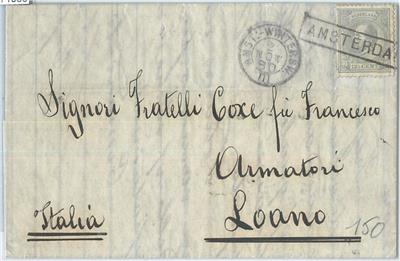 AMSTERDA
Signori Fratelli Coxe fu Francesco
Armatori
Italia
Loano
150